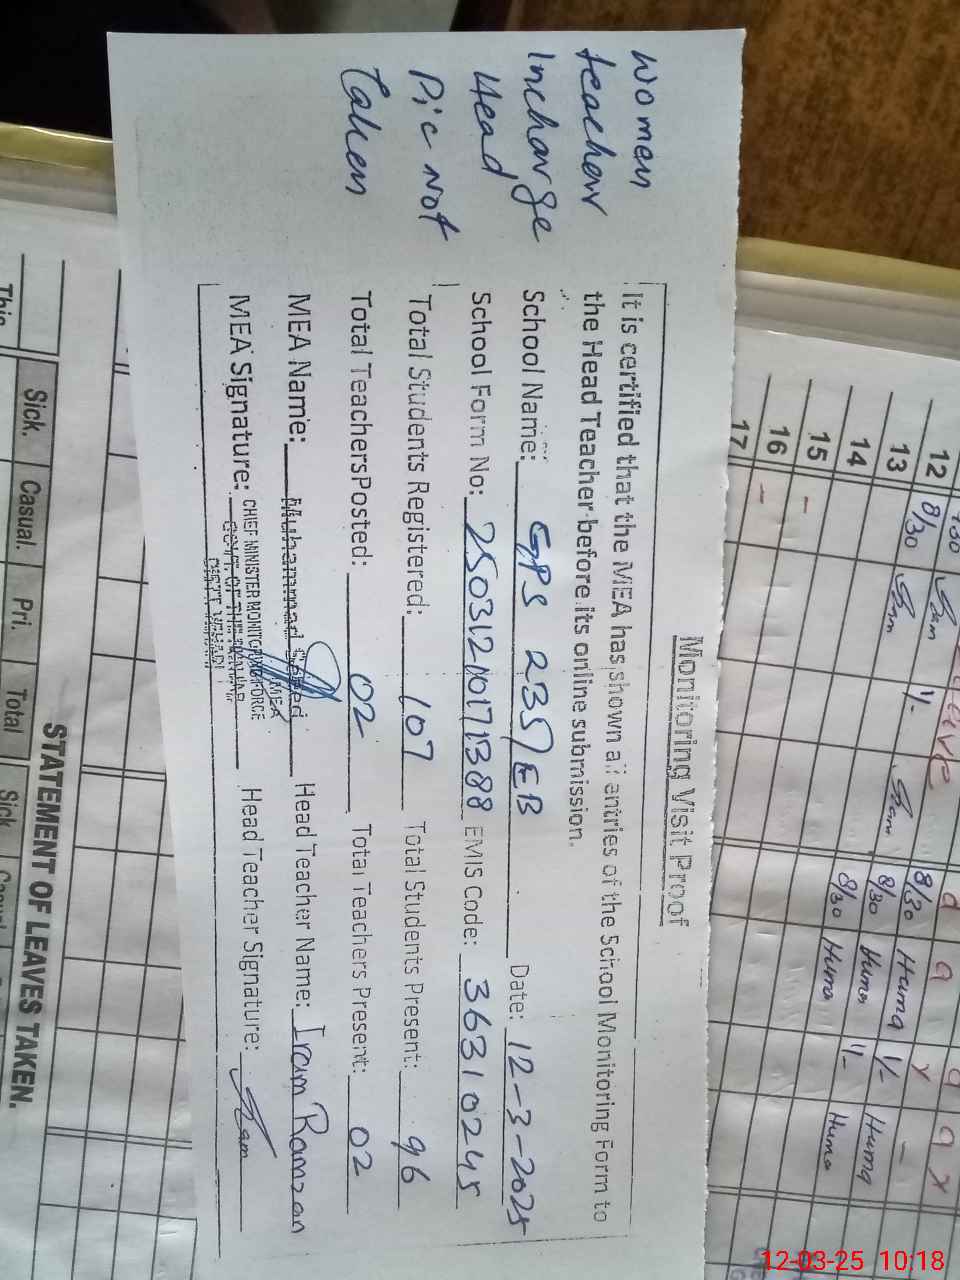 Women
teacher
Incharge
Head
Pic not
Taken
Monitoring Visit Proof
It is certified that the MEA has shown all entries of the School Monitoring Form to
the Head Teacher before its online submission.
School Name: GPS 235/EB Date: 12-3-2025
School Form No: 25031210171388 EMIS Code: 36310245
Total Students Registered: 107 Total Students Present: 96
Total Teachers Posted: 02 Total Teachers Present: 02
MEA Name: Muhammad Saeed Head Teacher Name: Iram Ramzan
MEA
MEA Signature: Head Teacher Signature: Iram
CHIEF MINISTER MONITORING FORCE
GOVT. OF THE PUNJAB
DISTT. VEHARI
12 8/30 8/30 Huma 1/-
13 1/- 8/30 Huma 1/- Huma
14 8/30 Huma 1/- Huma
15 -
16 -
17
STATEMENT OF LEAVES TAKEN.
Sick. Casual. Pri. Total Sick
This
12-03-25 10:18